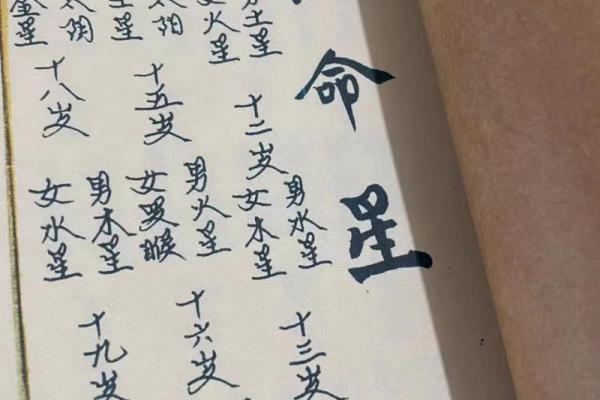 命星
土星
火星
太阳
星
太阴
金星
十二岁
男水星
女木星
十三岁
十五岁
男火星
女罗睺
十六岁
十八岁
男木星
女水星
十九岁